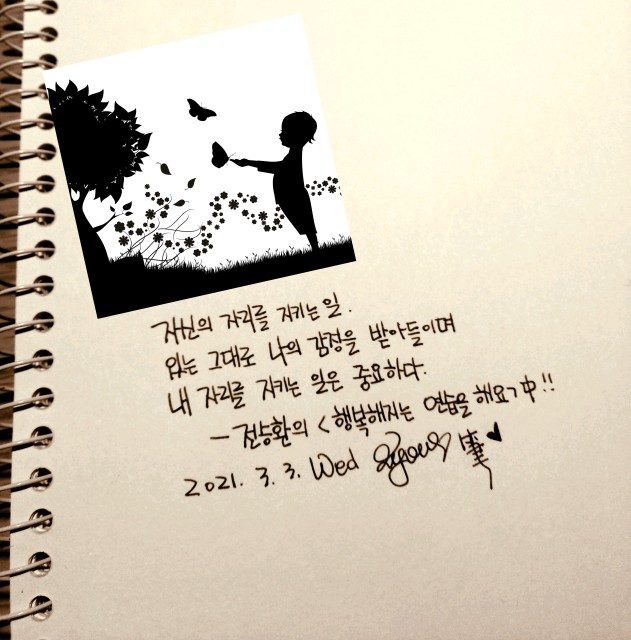 자신의 자리를 지키는 일.
있는 그대로 나의 감정을 받아들이며
내 자리를 지키는 일은 중요하다.
- 전승환의 <행복해지는 연습을 해요> 中!!
2021. 3. 3. Wed